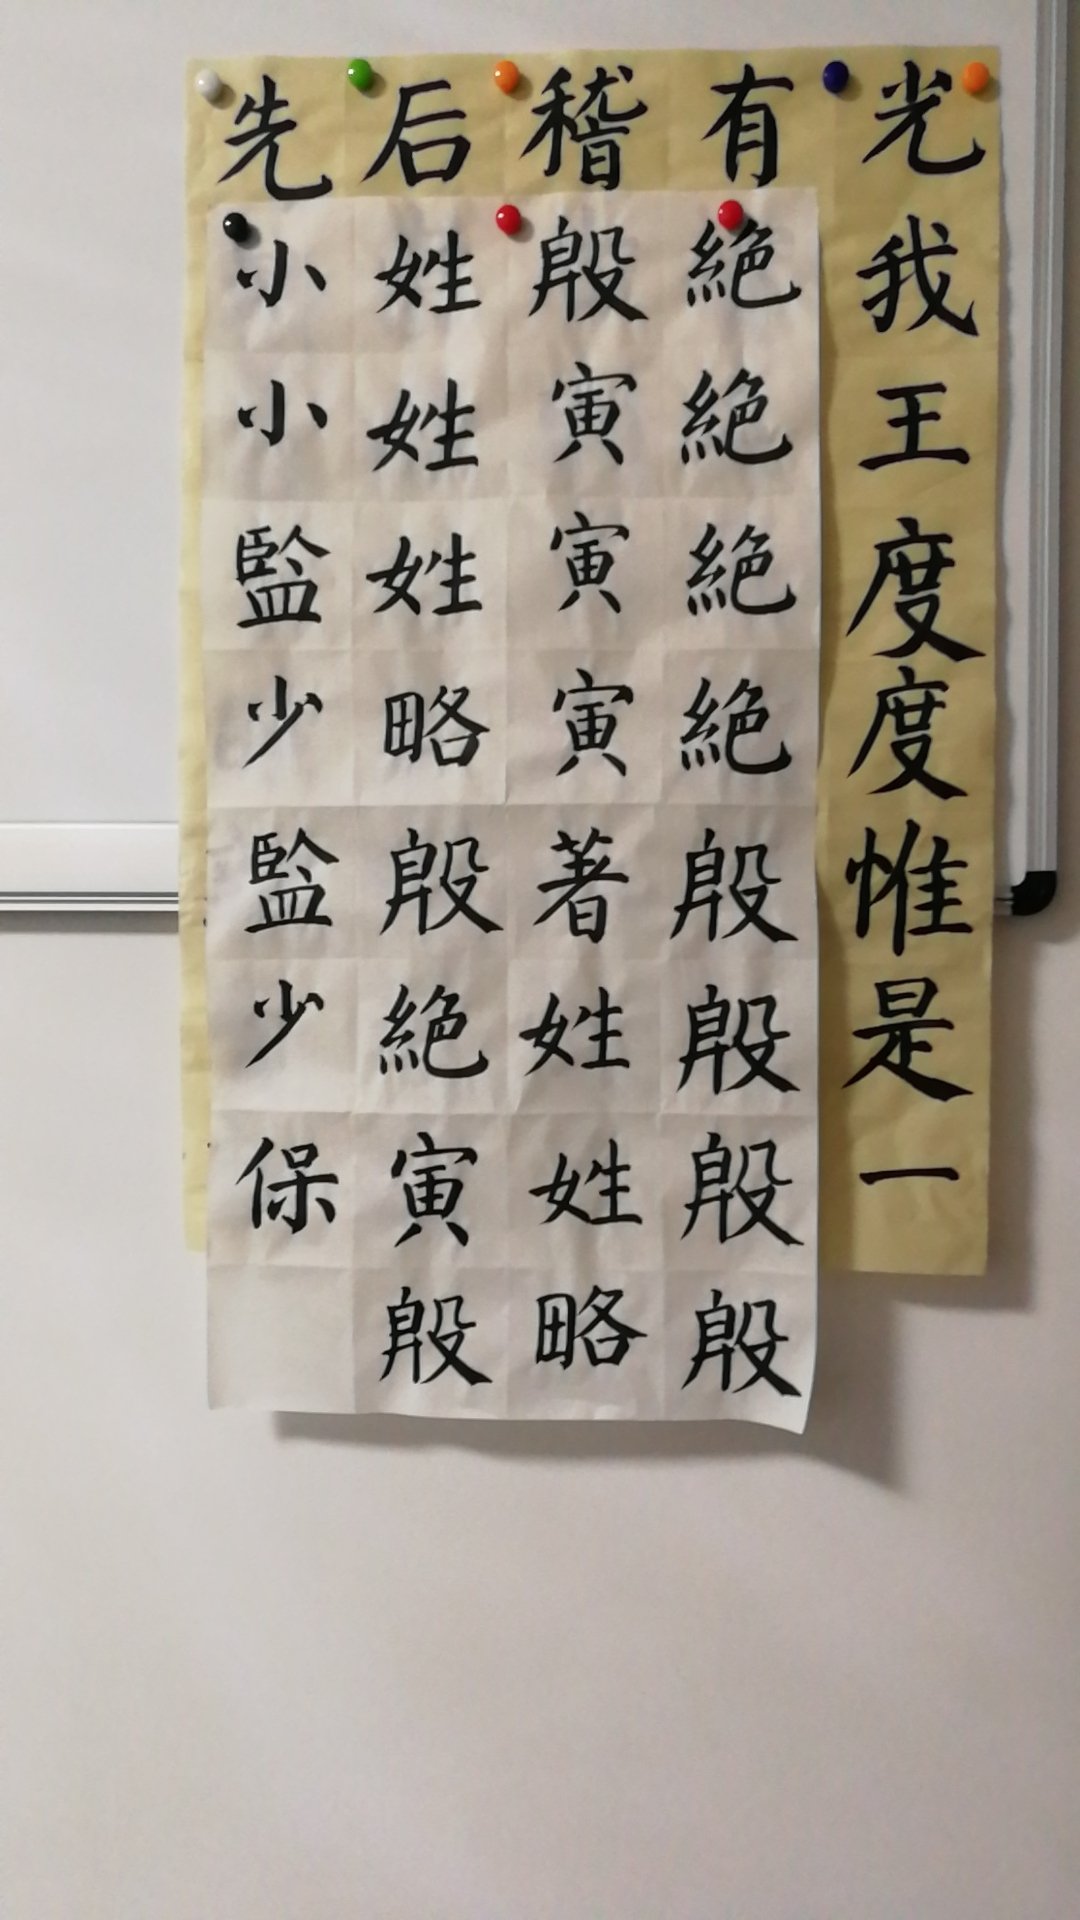 光我王度度惟是一
有
稽
后
先
絶絶絶絶殷殷殷殷
殷寅寅寅著姓姓略
姓姓姓略殷絶寅殷
小小監少監少保